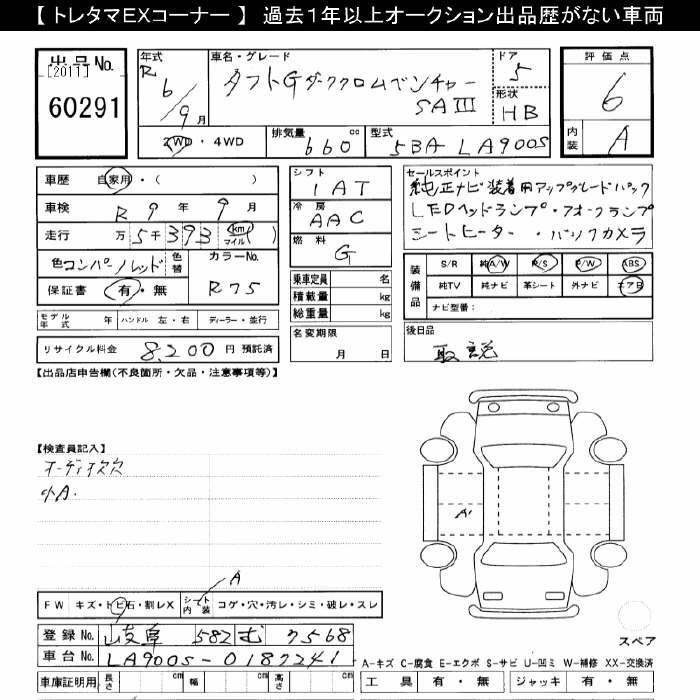 【 トレタマEXコーナー 】 過去１年以上オークション出品歴がない車両
出品No.
[2011]
60291
年式
R 6/9月
車名・グレード
タフトGダーククロムベンチャー
SAⅢ
ドア
5
形状
HB
評価点
6
内装
A
2WD ・ 4WD
排気量
660 cc
型式
5BA-LA900S
車歴 自家用・( )
車検 R 9 年 9 月
走行 万 5 千 393 km マイル ( )
色 コンパーノレッド 色替
カラーNo.
R75
保証書 有・無
シフト
1AT
冷房
AAC
燃料
G
乗車定員 名
積載量 kg
総重量 kg
セールスポイント
純正ナビ装着用アップグレードパック
LEDヘッドランプ・フォグランプ
シートヒーター・バックカメラ
装備品
S/R 純A/W P/S P/W ABS
純TV 純ナビ 革シート 外ナビ エアB
ナビ型番:
モデル年式 年 ハンドル 左・右 ディーラー・並行
リサイクル料金 8,200 円 預託済
名変期限
月 日
後日品
取説
【出品店申告欄(不良箇所・欠品・注意事項等)】
【検査員記入】
オーディオ欠
小A.
A'
A
FW キズ・トビ石・割レX シート内装 コゲ・穴・汚レ・シミ・破レ・スレ
登録No. 岐阜 582 む 7568
車台No. LA900S-0187241
スペア
A-キズ C-腐食 E-エクボ S-サビ U-凹ミ W-補修 XX-交換済
車庫証明用 長さ cm 幅 cm 高さ cm
工具 有・無 ジャッキ 有・無